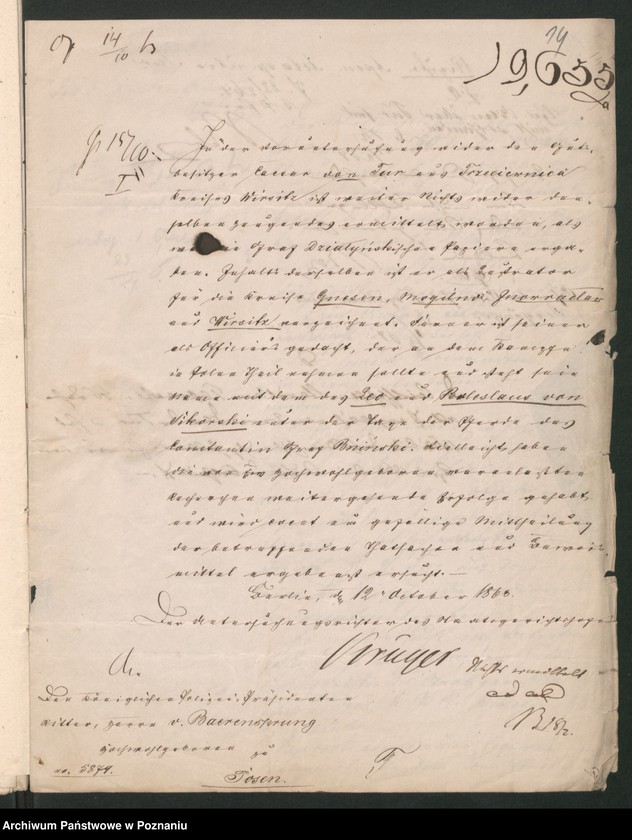 14/10
14
19,655
In der Voruntersuchung wider den Guts-
besitzer von Tur aus Trzeciewnica
Kreises Wirsitz ist weiter Nichts wider den-
selben zeugendes ermittelt worden, als
Graf Dzialyńskischen Papiere erge-
ben. Inhalts derselben ist er als Lustrator
für die Kreise Gnesen, Mogilno, Inowraclaw
und Wirsitz verzeichnet. Ferner ist seiner
als Officiers gedacht, der an dem Kampfe
in Polen Theil nehmen sollte und steht sein
Name mit dem des Leo und Boleslaus von
Sikorski unter der Taxe der Pferde des
Constantin Graf Bninski. Vielleicht haben
die von Ew Hochwohlgeboren veranlaßten
Recherchen weitergehende Erfolge gehabt,
und wird erg um gefällige Mittheilung
der betreffenden Thatsachen und Beweis-
mittel ergebenst ersucht.—
Berlin, d 12 October 186
Der Untersuchungsrichter des Staatsgerichtshofes
Krüger
Nichts ermittelt
ad ac
An
Den Königlichen Polizei-Präsidenten
Ritter, Herrn v. Baerensprung
Hochwohlgeboren
zu
no. 5874.
Posen.
Archiwum Państwowe w Poznaniu